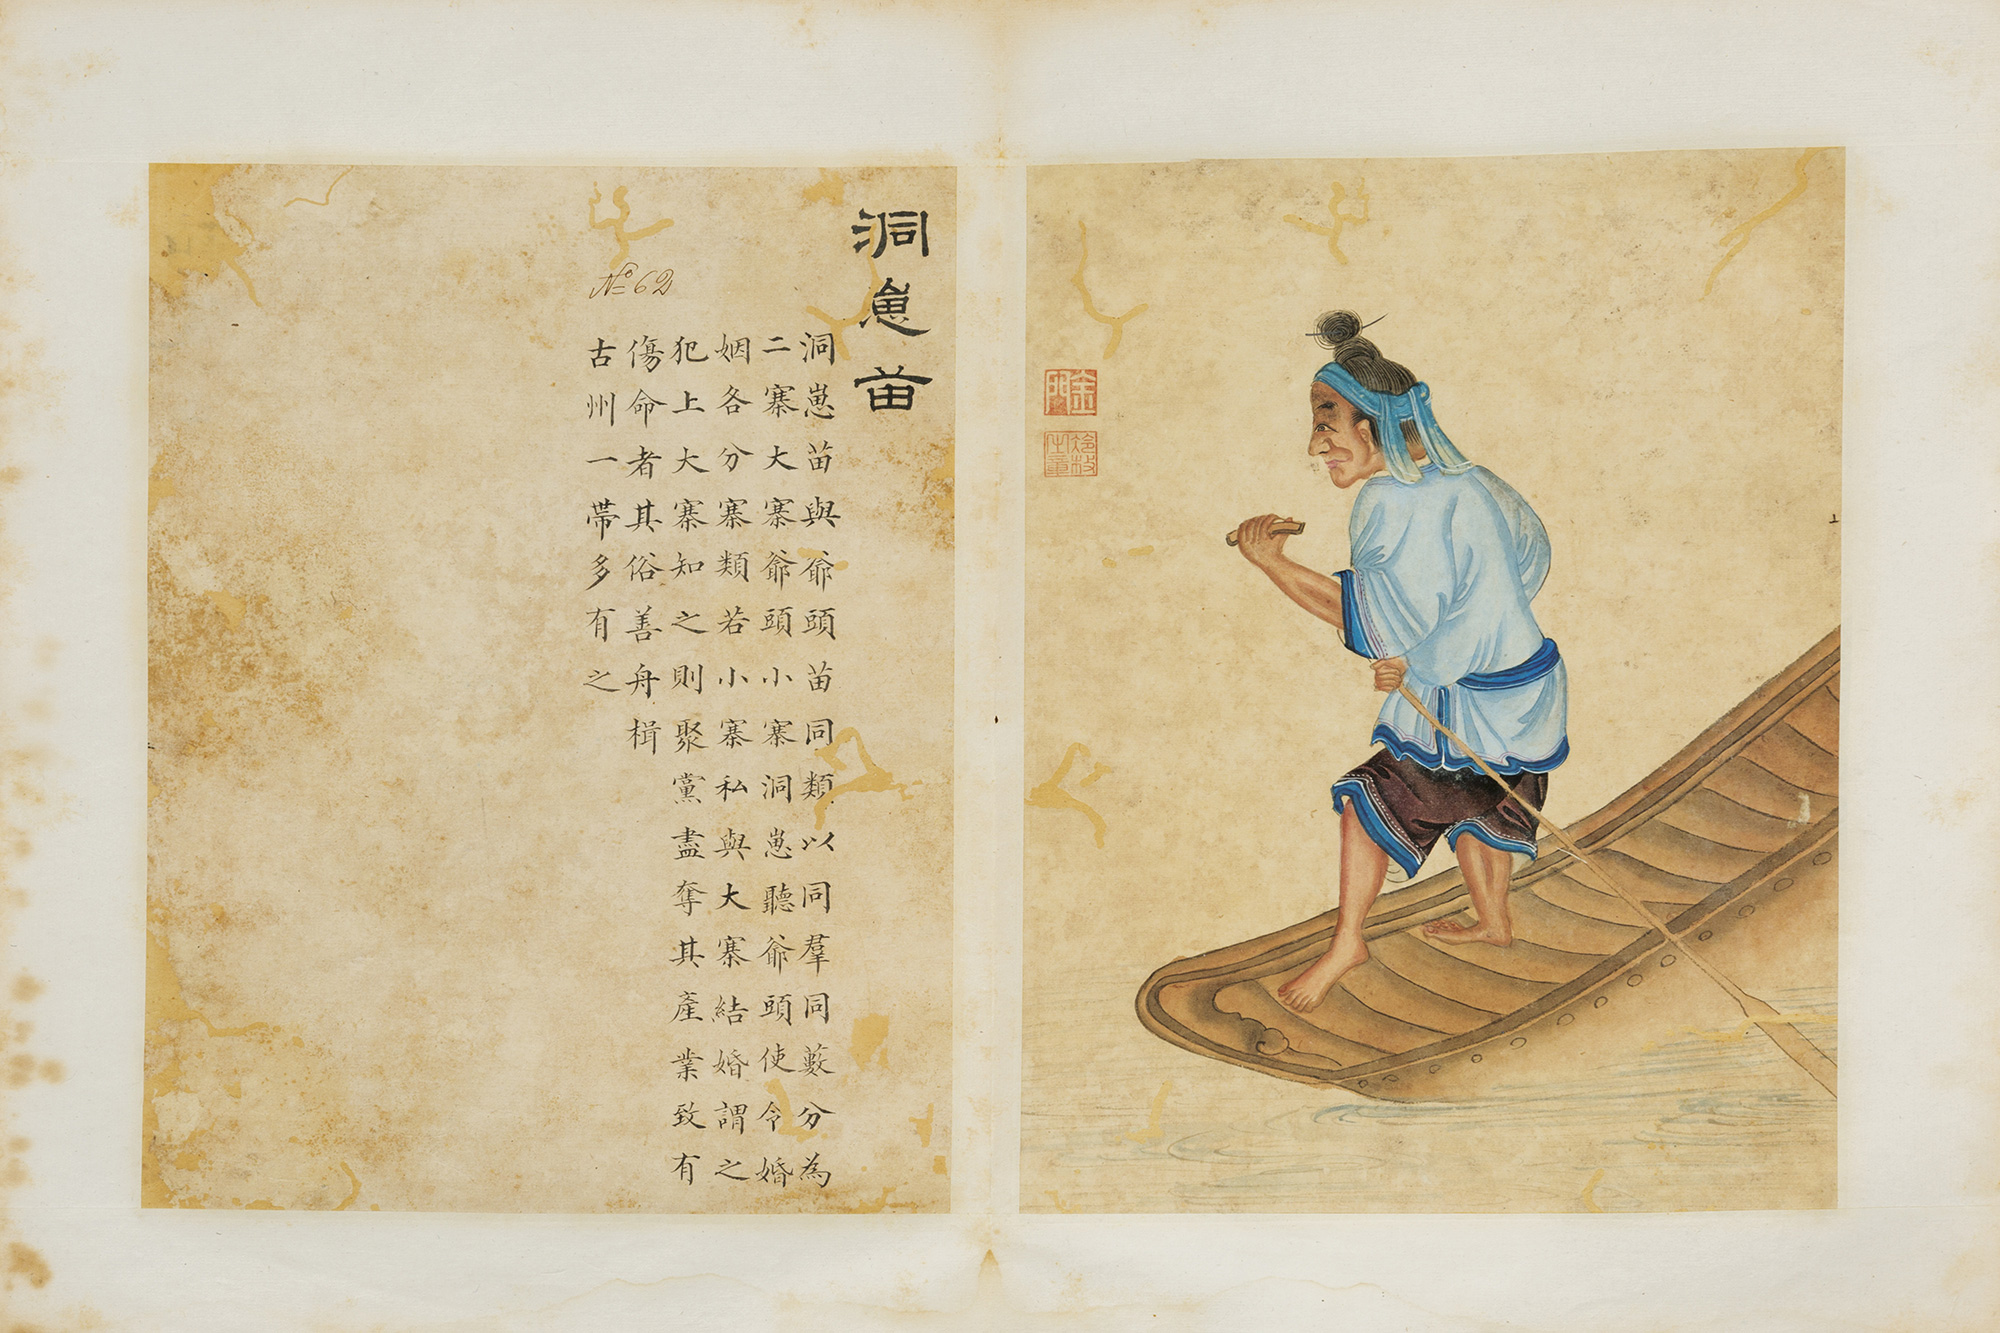 洞崽苗
洞崽苗與爺頭苗同類以同羣同藪分為
二寨大寨爺頭小寨洞崽聽爺頭使令婚
姻各分寨類若小寨私與大寨結婚謂之
犯上大寨知之則聚黨盡奪其產業致有
傷命者其俗善舟楫
古州一帶多有之
№ 62